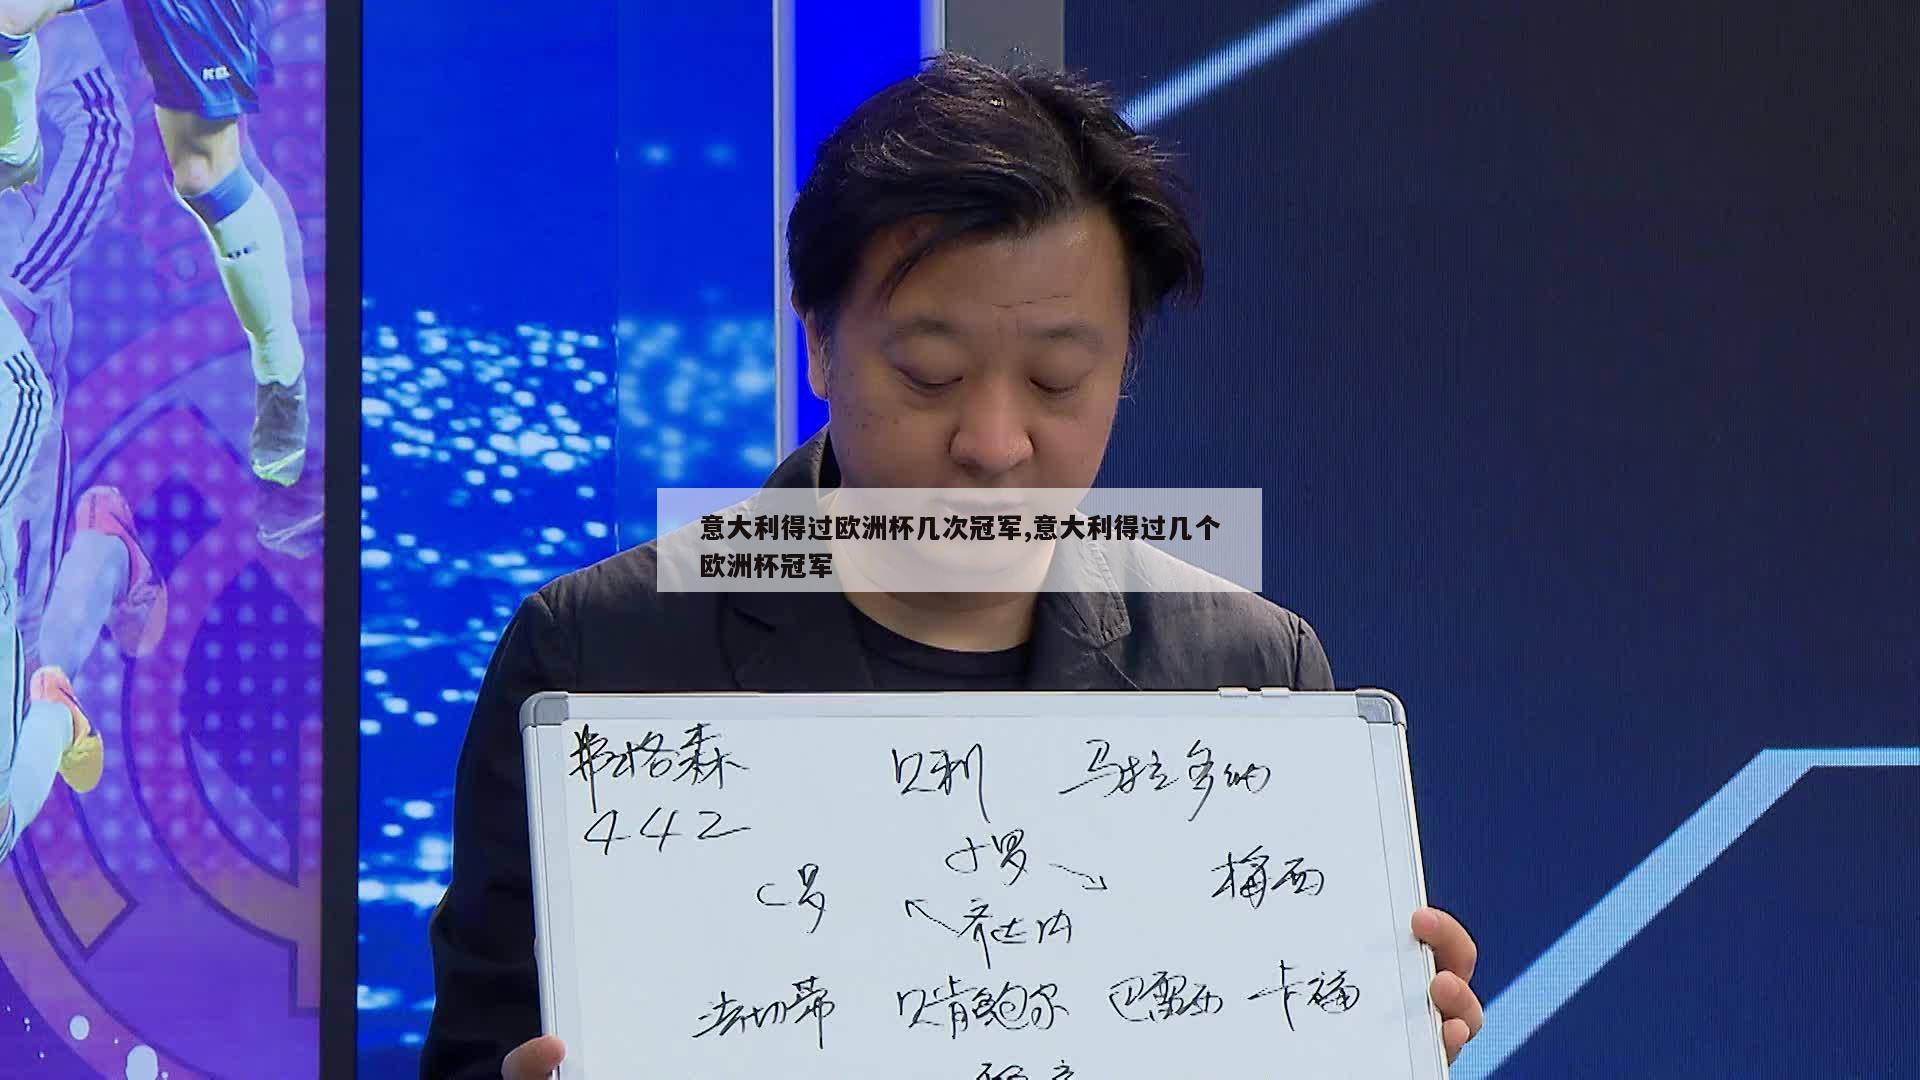 意大利得过欧洲杯几次冠军,意大利得过几个
欧洲杯冠军
弗格森 贝利 马拉多纳
442
小罗
C罗 梅西
齐达内
法切蒂 贝肯鲍尔 巴雷西 卡福